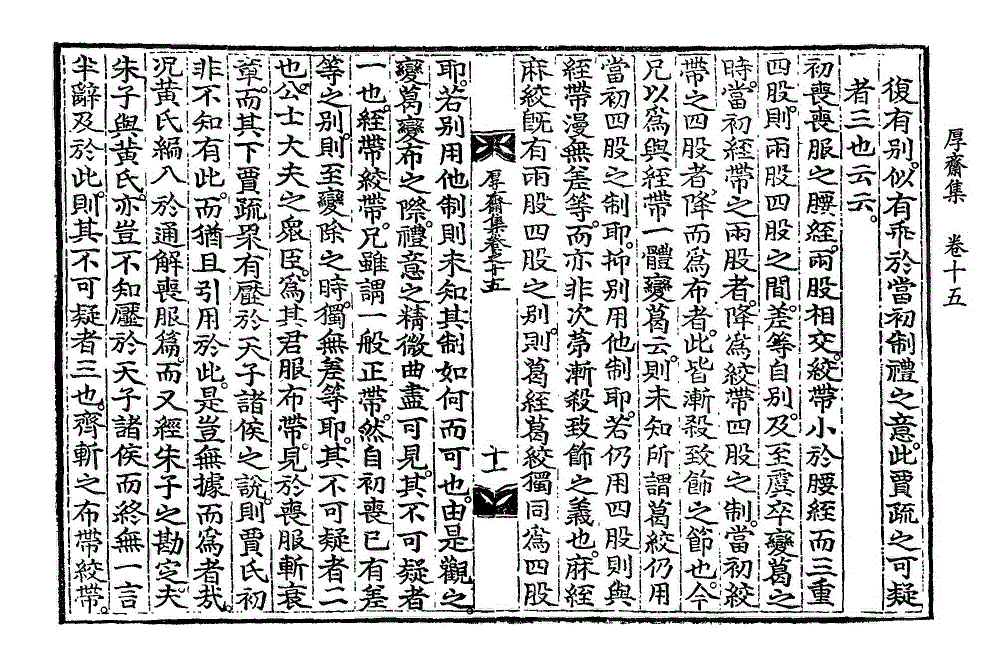 厚齋集　卷十五
復有别。似有乖於當初制禮之意。此賈疏之可疑
者三也云云。
初喪喪服之腰絰。兩股相交。絞帶小於腰絰而三重
四股。則兩股四股之間。差等自别。及至虞卒變葛之
時。當初絰帶之兩股者。降爲絞帶四股之制。當初絞
帶之四股者。降而爲布者。此皆漸殺致飾之節也。今
兄以爲與絰帶一體變葛云。則未知所謂葛絞仍用
當初四股之制耶。抑别用他制耶。若仍用四股則與
絰帶漫無差等。而亦非次第漸殺致飾之義也。麻絰
麻絞旣有兩股四股之别。則葛絰葛絞獨同爲四股
厚齋集卷之十五
十一
耶。若别用他制則未知其制如何而可也。由是觀之。
變葛變布之際。禮意之精微曲盡可見。其不可疑者
一也。絰帶絞帶。兄雖謂一般正帶。然自初喪已有差
等之别。則至變除之時。獨無差等耶。其不可疑者二
也。公士大夫之衆臣。爲其君服布帶。見於喪服斬衰
章。而其下賈疏果有壓於天子諸侯之說。則賈氏初
非不知有此。而猶且引用於此。是豈無據而爲者哉。
况黃氏編入於通解喪服篇。而又經朱子之勘定。夫
朱子與黃氏。亦豈不知壓於天子諸侯而終無一言
半辭及於此。則其不可疑者三也。齊斬之布帶絞帶。